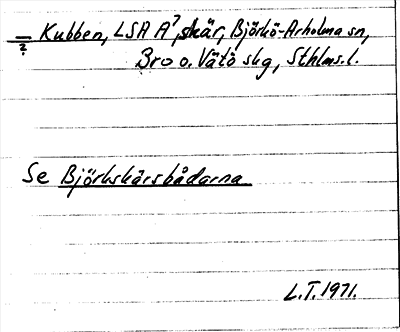 — Kubben, LSA A⁷, skär, Björkö-Arholma sn,
2 Bro o. Vätö skg, Sthlms. l.
Se Björkskärsbådarna
L.T. 1971.